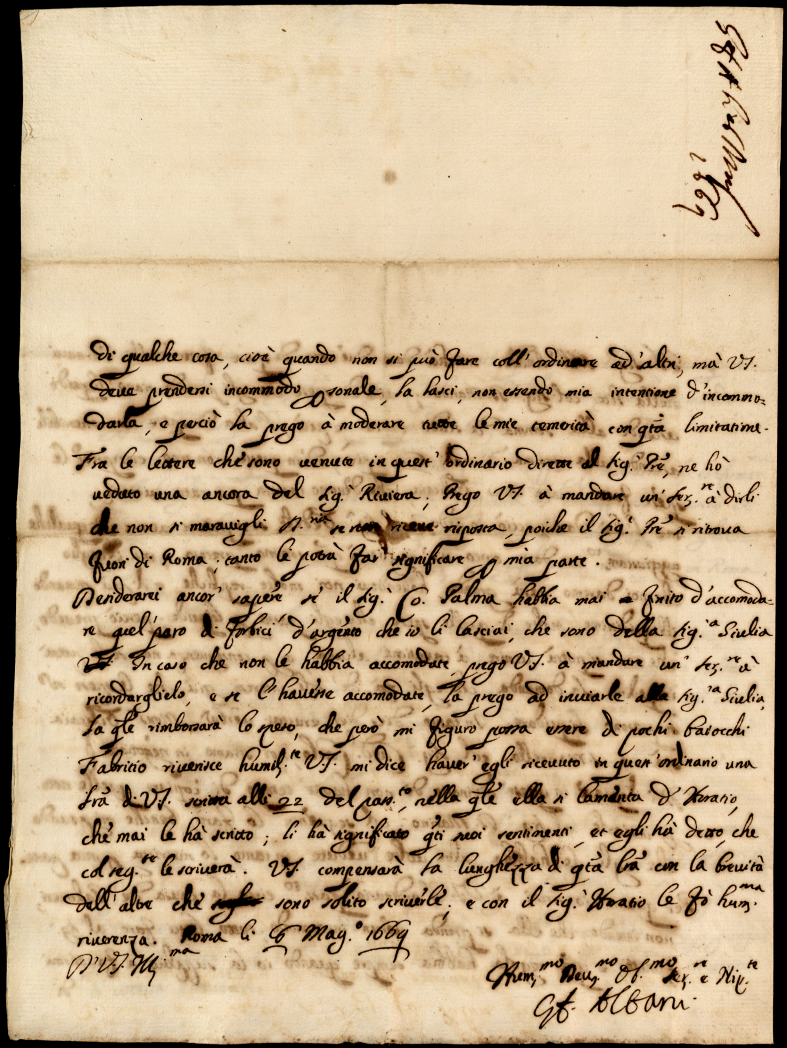 1669
di qualche cosa, cioè quando non si può fare coll' ordinare ad' altri, mà VS.
deva prendersi incommodo personale, la lasci, non essendo mia intentione d'incommo=
darla, e perciò la prego à moderare tutte le mie temerità con qta limitatione.
Fra le lettere che sono venute in quest' ordinario dirette al Sig.r Pre, ne hò
veduto una ancora del Sig.r Riviera; Prego VS. à mandare un' ser.re à dirli
che non si maravigli se non riceve risposta, poiche il Sig.r Pre si ritrova
fuori di Roma; tanto le potrà far' significare per mia parte.
Desiderarei ancor' sapere se il Sig.r Co. Palma habbia mai finito d'accomoda=
re quel' paro di forbici d'argento che io li lasciai, che sono della Sig.ra Giulia
In caso che non le habbia accomodate prego VS. à mandare un' ser.re à
ricordarglielo, e se l'havesse accomodate, la prego ad inviarle alla Sig.ra Giulia,
la qle rimborsarà lo speso, che però mi figuro possa essere di pochi baiocchi
Fabritio riverisce humil.te VS. mi dice haver' egli ricevuto in quest' ordinario una
lra di VS. scritta alli 22 del pass.to, nella qle ella si lamenta d' Horatio,
che mai le hà scritto; li hà significato qti suoi sentimenti, et egli hà detto, che
col seg.te le scriverà. VS. compensarà la lunghezza di qta lra con la brevità
dell' altre che sono solito scriverle; e con il Sig.r Horatio le fò hum.ma
riverenza. Roma li 6 Mag.o 1669
D' VS. Ill.ma
Hum.mo Dev.mo Ob.mo Ser.re e Nip.te
Gf. Albani